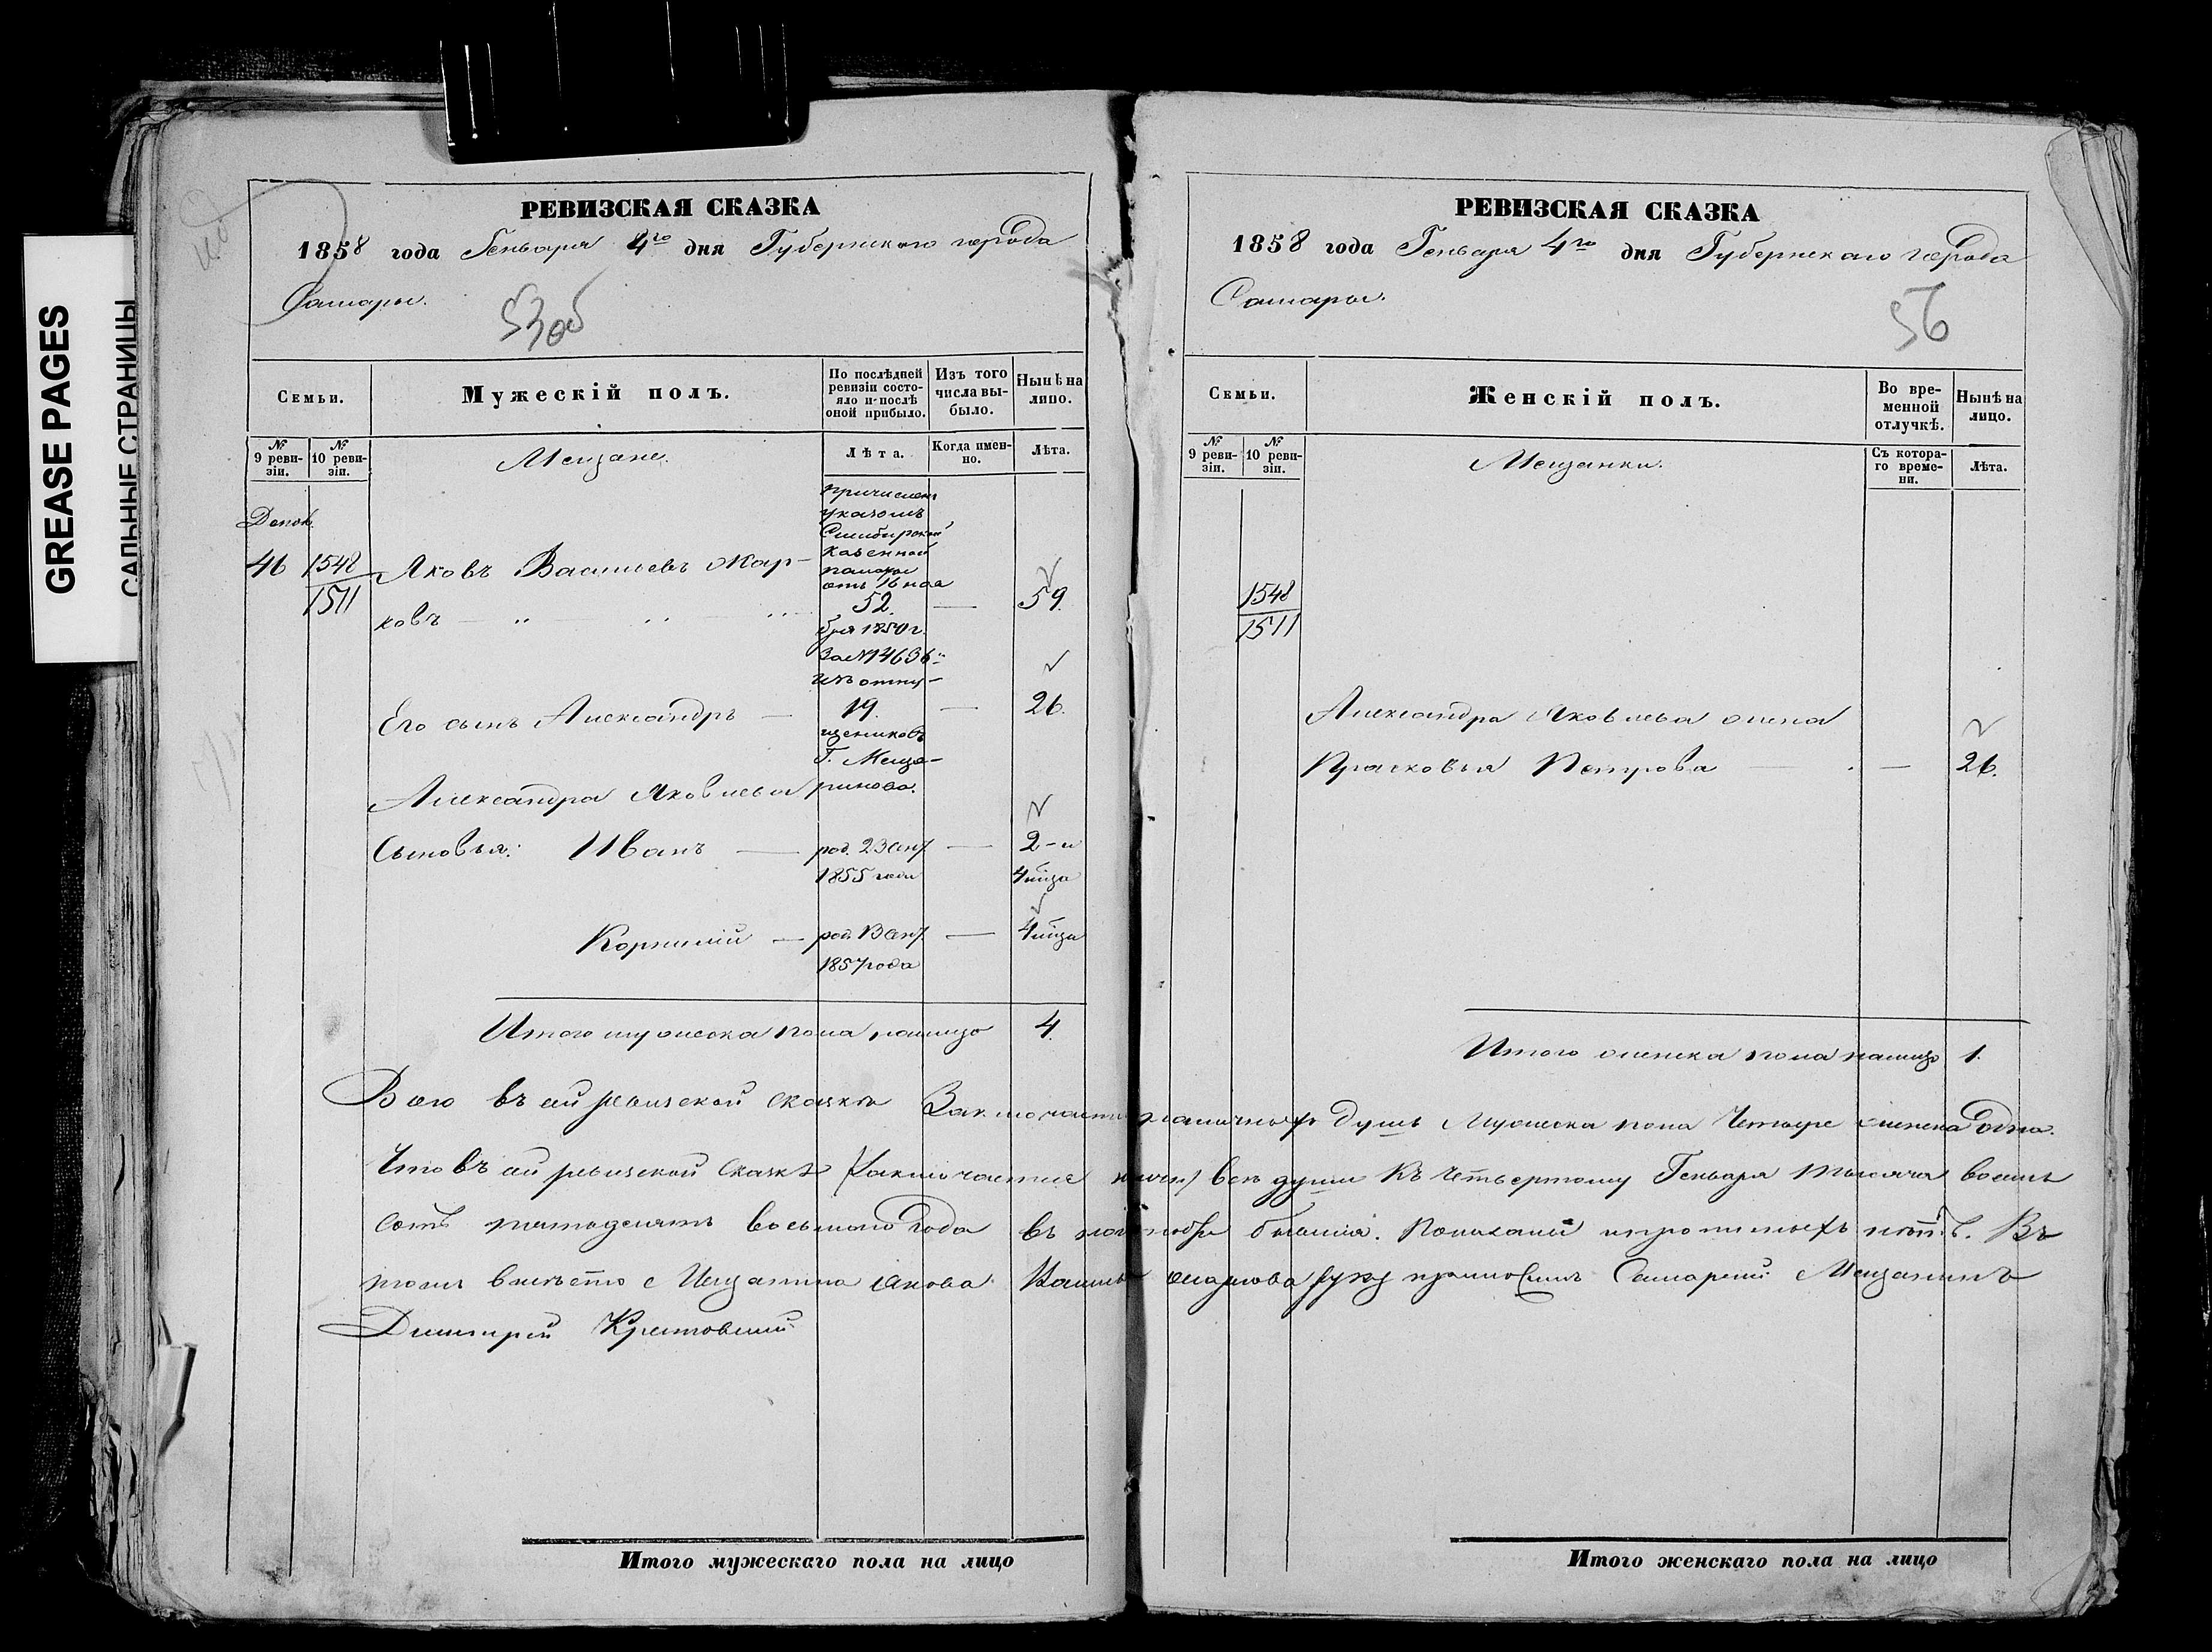 GREASE PAGES
САЛЬНЫЕ СТРАНИЦЫ
РЕВИЗСКАЯ СКАЗКА
1858 года Генваря 4го дня Губернскаго города
Самары.
53об
Семьи.
Мужескій полъ.
По послѣдней
ревизіи состо-
яло и послѣ
оной прибыло.
Изъ того
числа вы-
было.
Нынѣ на
лицо.
№
9 реви-
зіи.
№
10 реви-
зіи.
Мещане.
Лѣта.
Когда имен-
но.
Лѣта.
Допол.
46 1548
1511
Яковъ Васильевъ Мар-
ковъ
причислен
указомъ
Симбирской
казенной
палаты
отъ 16 ноя
52. — 59.
бря 1850 г.
За №14636
изъ отпу-
Его сынъ Александръ — 19. — 26.
щениковъ
Г. Меща-
ринова.
Александра Яковлева
Сыновья: Иванъ — род. 23 окт. — 2-и
1855 года 4 мца
Корнилій — род. 13 окт. — 4 мца
1857 года
Итого мужеска пола налицо 4.
РЕВИЗСКАЯ СКАЗКА
1858 года Генваря 4го дня Губернскаго города
Самары.
56
Семьи.
Женскій полъ.
Во вре-
менной
отлучкѣ.
Нынѣ на
лицо.
№
9 реви-
зіи.
№
10 реви-
зіи.
Мещанки.
Съ котора-
го време-
ни.
Лѣта.
1548
1511
Александра Яковлева жена
Прасковья Петрова — 26.
Итого женска пола налицо 1.
Всего въ сей ревизской сказкѣ Заключается наличныхъ душъ Мужеска пола Четыре женска одна.
Что въ сей ревизской сказкѣ заключаются всѣ души Къ Четвертому Генваря тысяча восемь
сотъ пятьдесятъ восьмого года въ бывшія. Показаны и пропиныхъ нѣтъ. Въ
томъ вмѣсто Мещанина Якова Васильева Маркова руку приложилъ Самарскій Мещанинъ
Димитрій
Итого мужескаго пола на лицо
Итого женскаго пола на лицо